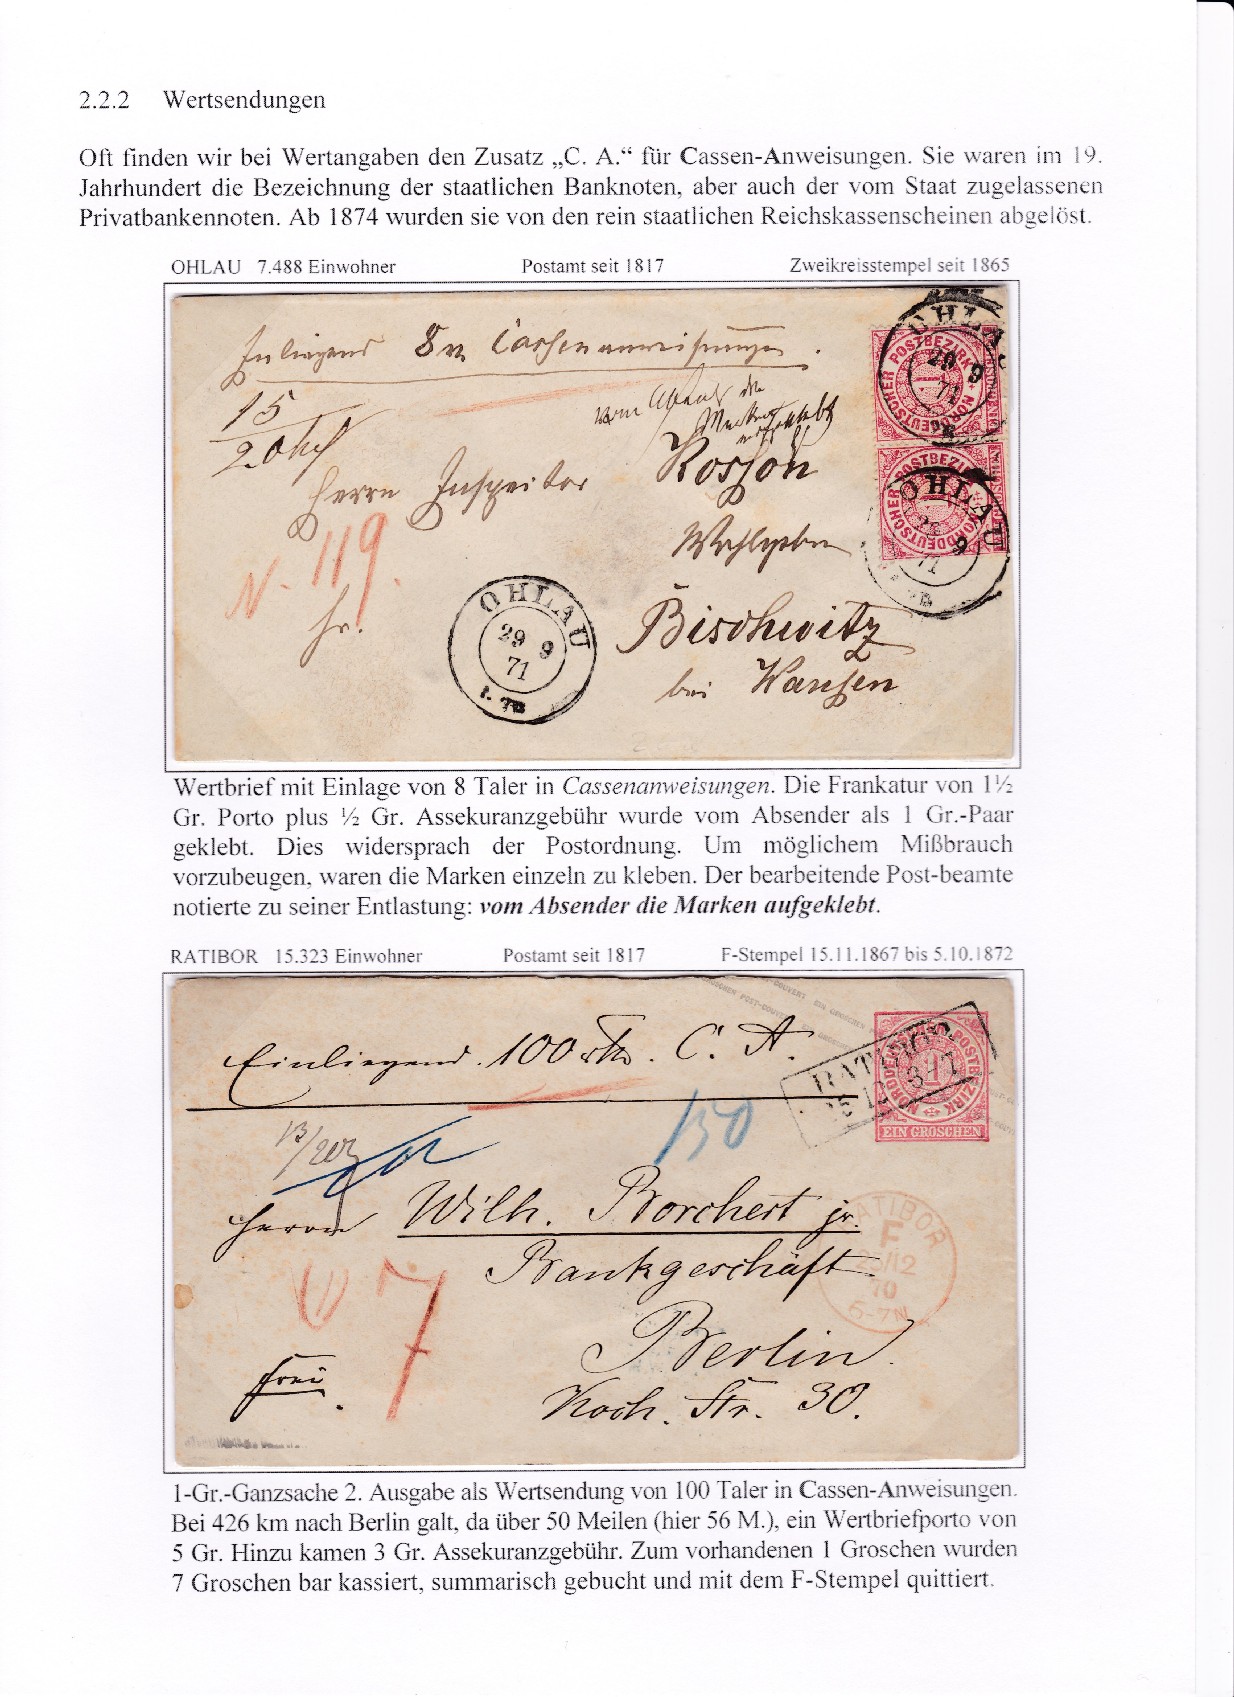 2.2.2 Wertsendungen
Oft finden wir bei Wertangaben den Zusatz „C. A.“ für Cassen-Anweisungen. Sie waren im 19.
Jahrhundert die Bezeichnung der staatlichen Banknoten, aber auch der vom Staat zugelassenen
Privatbankennoten. Ab 1874 wurden sie von den rein staatlichen Reichskassenscheinen abgelöst.
OHLAU 7.488 Einwohner Postamt seit 1817 Zweikreisstempel seit 1865
Inliegend 8 Cassenanweisungen.
15
vom Absender die
Marken
aufgeklebt
Herrn Inspector Rosson
N. 119.
Bischwitz
bei Wansen
OHLAU
29 9
71
NORDDEUTSCHER POSTBEZIRK
1
OHLAU
29 9
71
NORDDEUTSCHER POSTBEZIRK
1
OHLAU
9
71
Wertbrief mit Einlage von 8 Taler in Cassenanweisungen. Die Frankatur von 1½
Gr. Porto plus ½ Gr. Assekuranzgebühr wurde vom Absender als 1 Gr.-Paar
geklebt. Dies widersprach der Postordnung. Um möglichem Mißbrauch
vorzubeugen, waren die Marken einzeln zu kleben. Der bearbeitende Post-beamte
notierte zu seiner Entlastung: vom Absender die Marken aufgeklebt.
RATIBOR 15.323 Einwohner Postamt seit 1817 F-Stempel 15.11.1867 bis 5.10.1872
Einliegend 100 C. A.
150
NORDDEUTSCHER POSTBEZIRK
1
EIN GROSCHEN
RATIBOR
Herrn Wilh. Borchert jr.
Bankgeschäft
Berlin.
Koch. Str. 30.
7
frei
RATIBOR
F
/12
70
6-7N
1-Gr.-Ganzsache 2. Ausgabe als Wertsendung von 100 Taler in Cassen-Anweisungen.
Bei 426 km nach Berlin galt, da über 50 Meilen (hier 56 M.), ein Wertbriefporto von
5 Gr. Hinzu kamen 3 Gr. Assekuranzgebühr. Zum vorhandenen 1 Groschen wurden
7 Groschen bar kassiert, summarisch gebucht und mit dem F-Stempel quittiert.